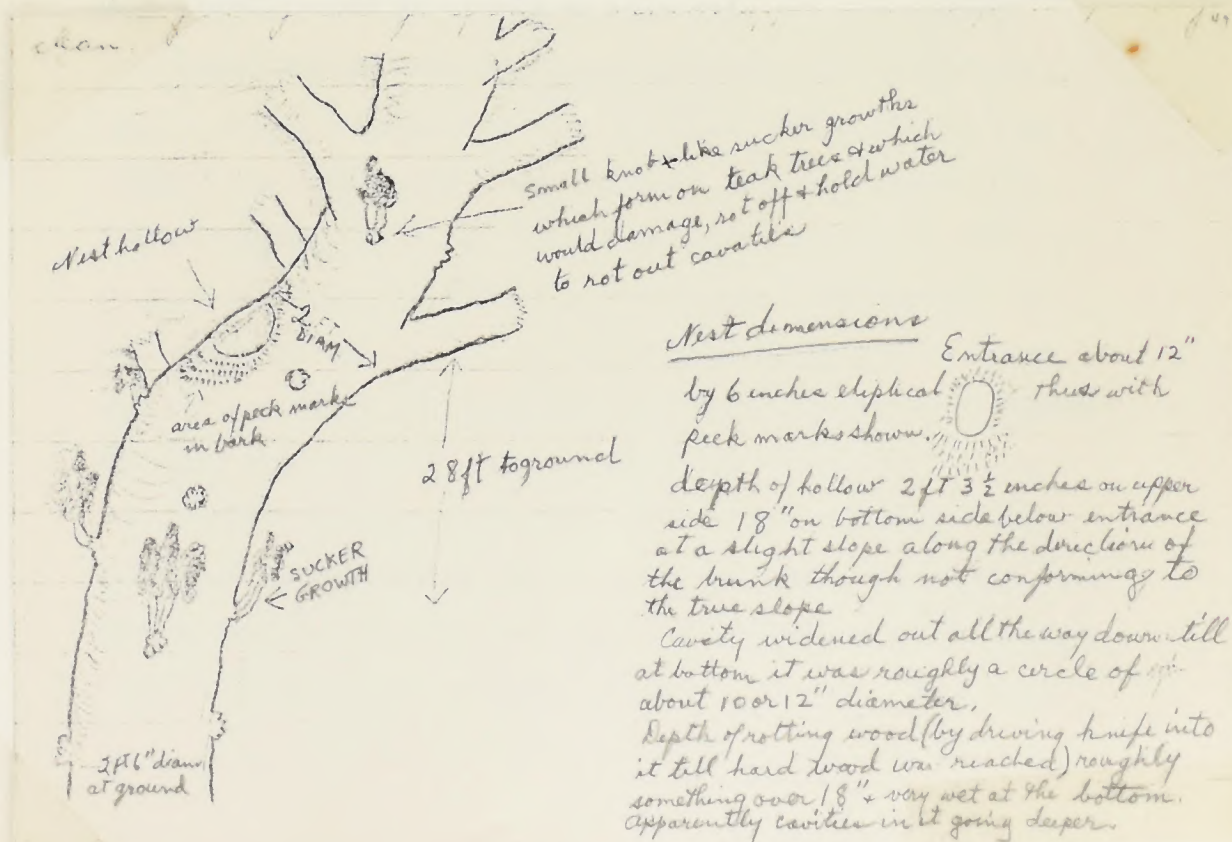 clean.
Small knob & like sucker growths
which form on teak trees & which
would damage, rot off & hold water
to rot out cavaties
Nest hollow
2'
DIAM
area of peck marks
in bark
28 ft to ground
SUCKER
GROWTH
2 ft 6" diam
at ground
Nest dimensions
Entrance about 12"
by 6 inches eliptical thus with
peck marks shown.
deypth of hollow 2 ft 3 1/2 inches on upper
side 18" on bottom side below entrance
at a slight slope along the direction of
the trunk though not conforming to
the true slope
Cavity widened out all the way down till
at bottom it was roughly a circle of
about 10 or 12" diameter.
Depth of rotting wood (by driving knife into
it till hard wood was reached) roughly
something over 18" & very wet at the bottom.
Apparently cavities in it going deeper.